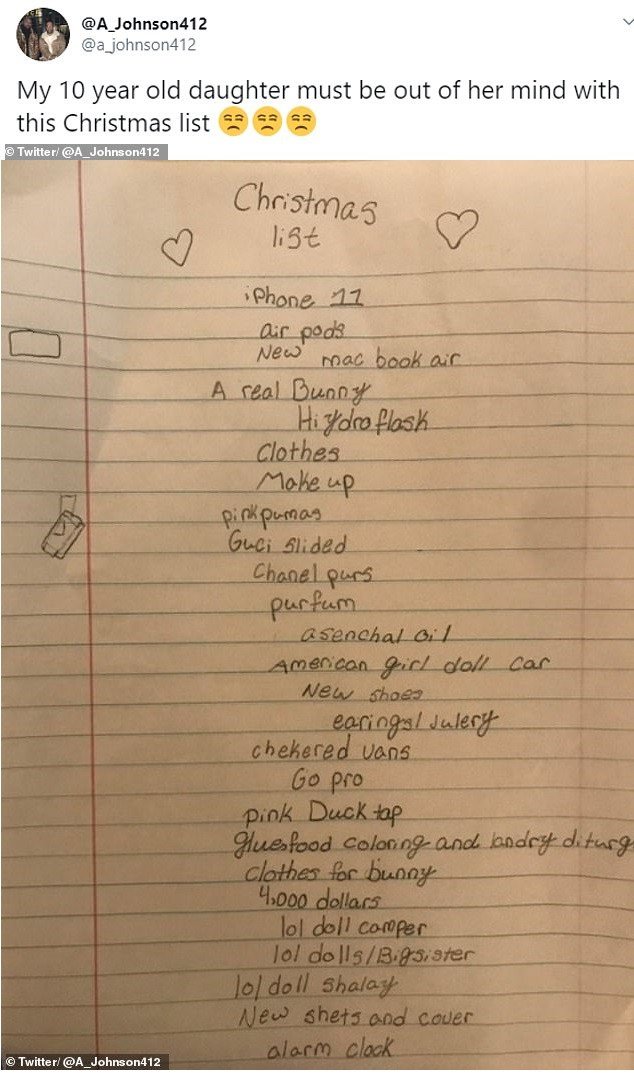 @A_Johnson412
@a_johnson412
My 10 year old daughter must be out of her mind with
this Christmas list 😒😒😒
© Twitter/ @A_Johnson412
Christmas
list
iPhone 11
air pods
New mac book air
A real Bunny
Hiydroflask
Clothes
Make up
pink pumas
Guci slided
Chanel purs
purfum
asenchal oil
American girl doll car
New shoes
earings/Julery
chekered vans
Go pro
pink Duck tap
glue,food coloring and landry diturg
clothes for bunny
4,000 dollars
lol doll camper
lol dolls/Bigsister
lol doll shalay
New shets and cover
alarm clock
© Twitter/ @A_Johnson412